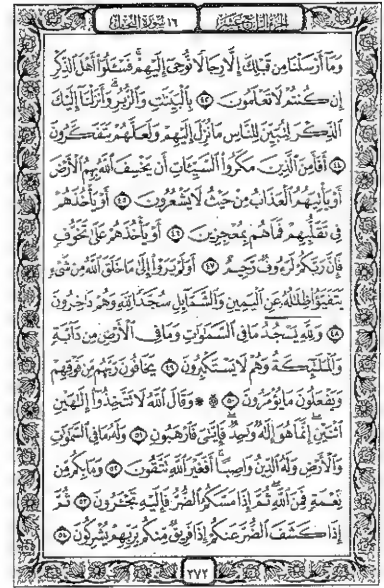 الجزء الرابع عشر ١٦ سورة النحل
وَمَا أَرْسَلْنَا مِن قَبْلِكَ إِلَّا رِجَالًا نُّوحِي إِلَيْهِمْ فَسْـَٔلُوٓا۟ أَهْلَ ٱلذِّكْرِ
إِن كُنتُمْ لَا تَعْلَمُونَ ٤٣ بِٱلْبَيِّنَـٰتِ وَٱلزُّبُرِ وَأَنزَلْنَآ إِلَيْكَ
ٱلذِّكْرَ لِتُبَيِّنَ لِلنَّاسِ مَا نُزِّلَ إِلَيْهِمْ وَلَعَلَّهُمْ يَتَفَكَّرُونَ
٤٤ أَفَأَمِنَ ٱلَّذِينَ مَكَرُوا۟ ٱلسَّيِّـَٔاتِ أَن يَخْسِفَ ٱللَّهُ بِهِمُ ٱلْأَرْضَ
أَوْ يَأْتِيَهُمُ ٱلْعَذَابُ مِنْ حَيْثُ لَا يَشْعُرُونَ ٤٥ أَوْ يَأْخُذَهُمْ
فِى تَقَلُّبِهِمْ فَمَا هُم بِمُعْجِزِينَ ٤٦ أَوْ يَأْخُذَهُمْ عَلَىٰ تَخَوُّفٍ
فَإِنَّ رَبَّكُمْ لَرَءُوفٌ رَّحِيمٌ ٤٧ أَوَلَمْ يَرَوْا۟ إِلَىٰ مَا خَلَقَ ٱللَّهُ مِن شَىْءٍ
يَتَفَيَّؤُا۟ ظِلَـٰلُهُۥ عَنِ ٱلْيَمِينِ وَٱلشَّمَآئِلِ سُجَّدًا لِّلَّهِ وَهُمْ دَٰخِرُونَ
٤٨ وَلِلَّهِ يَسْجُدُ مَا فِى ٱلسَّمَـٰوَٰتِ وَمَا فِى ٱلْأَرْضِ مِن دَآبَّةٍ
وَٱلْمَلَـٰٓئِكَةُ وَهُمْ لَا يَسْتَكْبِرُونَ ٤٩ يَخَافُونَ رَبَّهُم مِّن فَوْقِهِمْ
وَيَفْعَلُونَ مَا يُؤْمَرُونَ ٥٠ ۞ وَقَالَ ٱللَّهُ لَا تَتَّخِذُوٓا۟ إِلَـٰهَيْنِ
ٱثْنَيْنِ إِنَّمَا هُوَ إِلَـٰهٌ وَٰحِدٌ فَإِيَّـٰىَ فَٱرْهَبُونِ ٥١ وَلَهُۥ مَا فِى ٱلسَّمَـٰوَٰتِ
وَٱلْأَرْضِ وَلَهُ ٱلدِّينُ وَاصِبًا أَفَغَيْرَ ٱللَّهِ تَتَّقُونَ ٥٢ وَمَا بِكُم مِّن
نِّعْمَةٍ فَمِنَ ٱللَّهِ ثُمَّ إِذَا مَسَّكُمُ ٱلضُّرُّ فَإِلَيْهِ تَجْـَٔرُونَ ٥٣ ثُمَّ
إِذَا كَشَفَ ٱلضُّرَّ عَنكُمْ إِذَا فَرِيقٌ مِّنكُم بِرَبِّهِمْ يُشْرِكُونَ ٥٤
٢٧٢